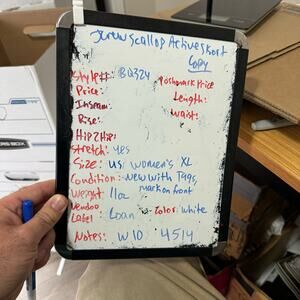 Jcrew Scallop Active Skort
Copy
Style#: BQ324
Poshmark Price
Price:
Length:
Inseam
Waist:
Rise:
Hip2Hip:
Stretch: yes
Size: US Women's XL
Condition: New with Tags,
mark on front
Weight 11oz
Vendoo
Label: Loan Color: White
Notes: W10 4514
ERS BOX